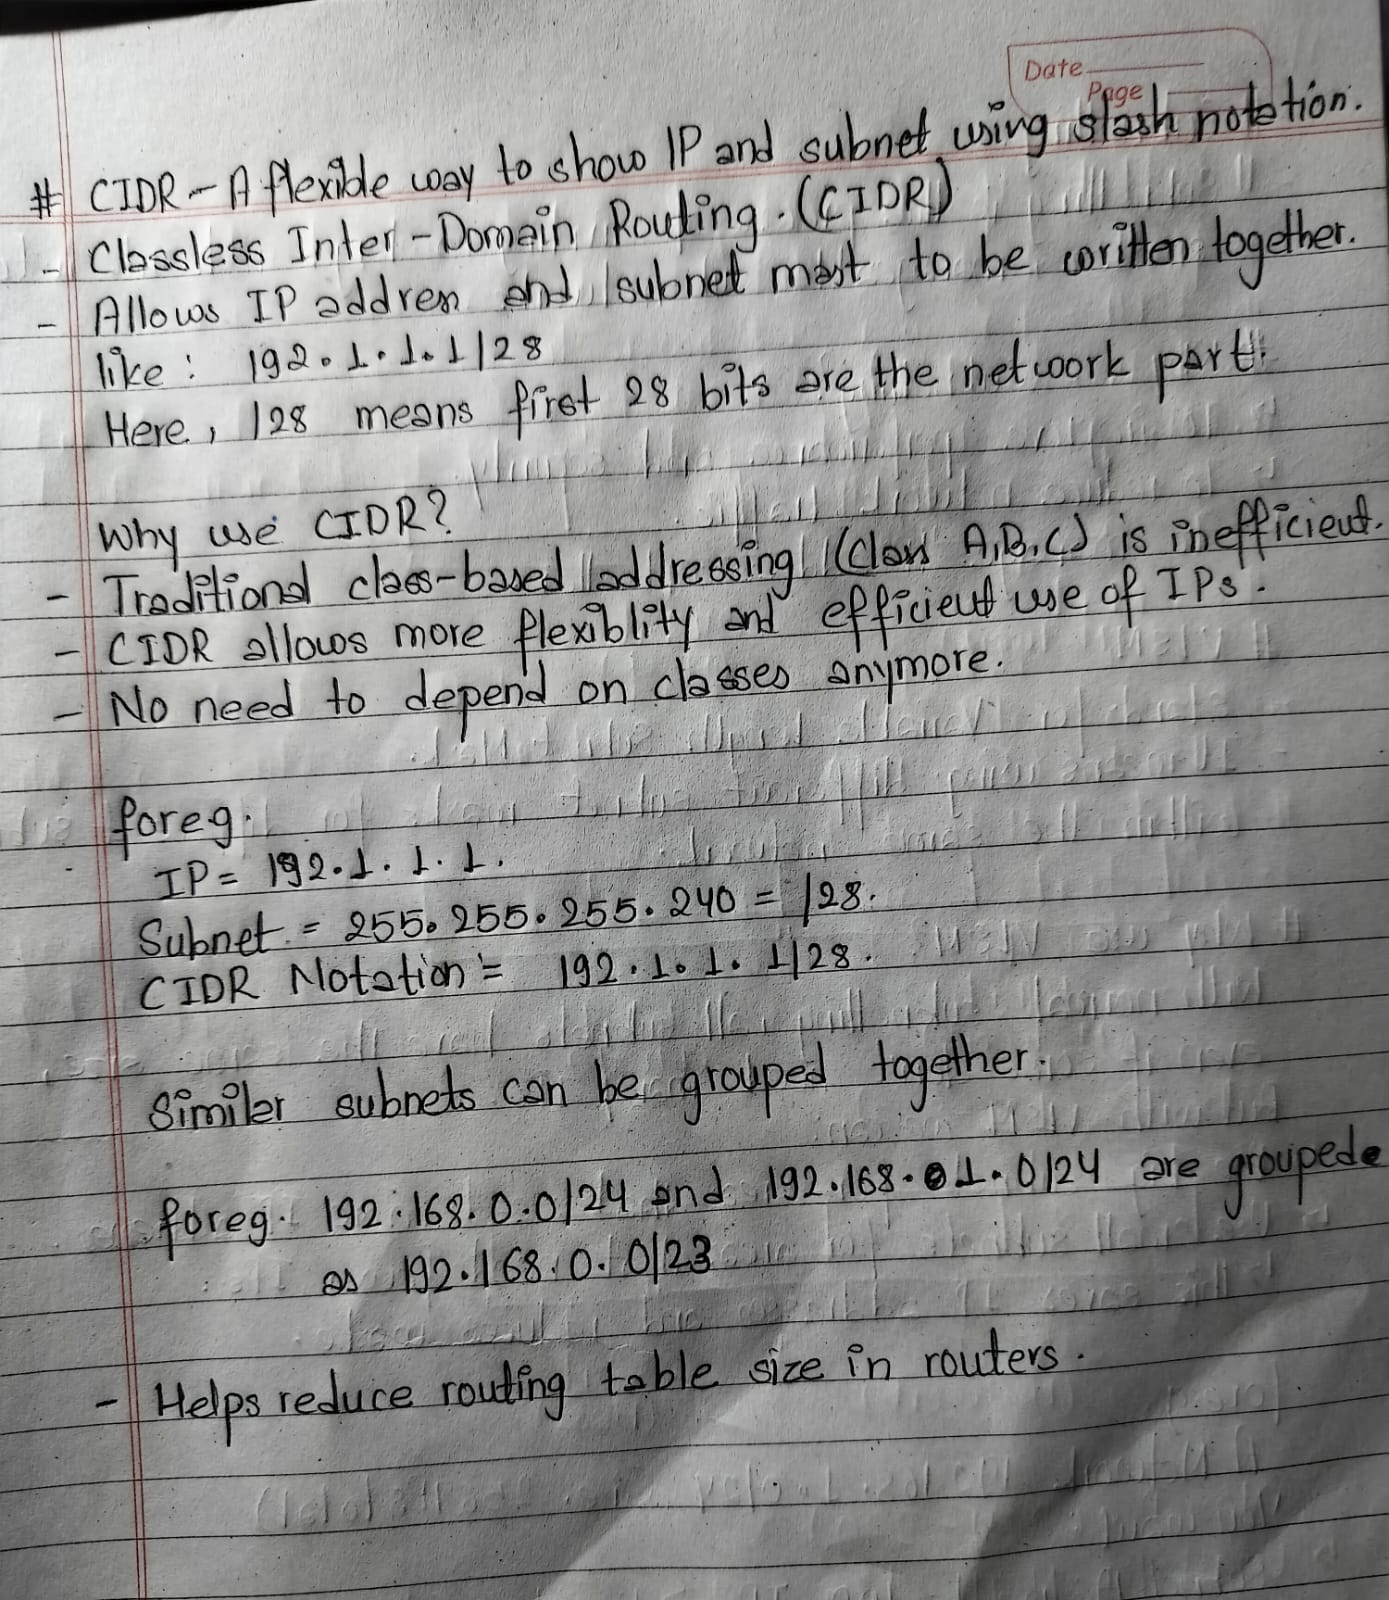 Date
Page
# CIDR - A flexible way to show IP and subnet using slash notation.
- Classless Inter-Domain Routing. (CIDR)
- Allows IP address and subnet mast to be written together.
like: 192.1.1.1/28
Here, /28 means first 28 bits are the network part.
Why use CIDR?
- Traditional class-based addressing (Class A,B,C) is inefficient.
- CIDR allows more flexiblity and efficient use of IPs.
- No need to depend on classes anymore.
foreg.
IP = 192.1.1.1.
Subnet = 255.255.255.240 = /28.
CIDR Notation = 192.1.1.1/28.
Similar subnets can be grouped together.
foreg. 192.168.0.0/24 and 192.168.1.0/24 are grouped
as 192.168.0.0/23
- Helps reduce routing table size in routers.